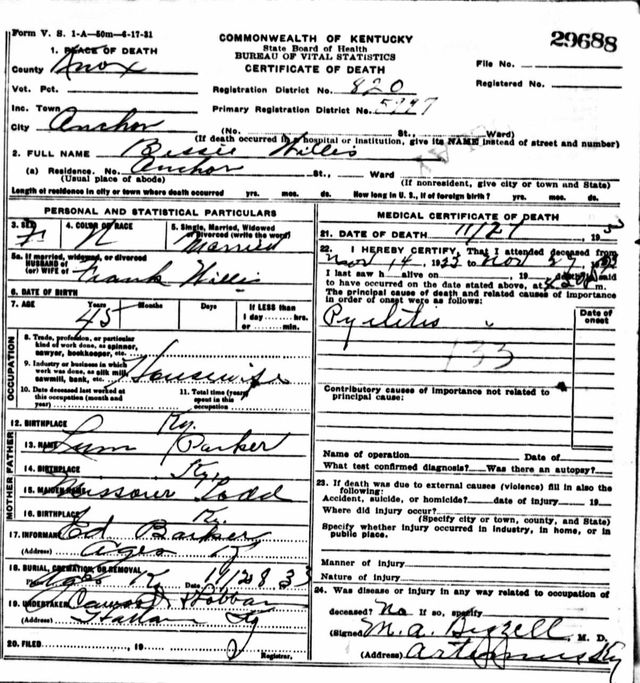 Form V. S. 1-A—50m—6-17-31
COMMONWEALTH OF KENTUCKY
State Board of Health
BUREAU OF VITAL STATISTICS
CERTIFICATE OF DEATH
29688
1. PLACE OF DEATH
County Knox
Vot. Pct.
Inc. Town
City Anchor
Registration District No. 820
Primary Registration District No.
File No.
Registered No.
(No. St., Ward)
(If death occurred in hospital or institution, give its NAME instead of street and number)
2. FULL NAME Bessie Willis
(a) Residence. No. Anchor St., Ward
(Usual place of abode)
(If nonresident, give city or town and State)
Length of residence in city or town where death occurred yrs. mos. ds. How long in U. S., if of foreign birth? yrs. mos. ds.
PERSONAL AND STATISTICAL PARTICULARS
3. SEX F
4. COLOR OR RACE
5. Single, Married, Widowed
or Divorced (write the word)
Married
5a. If married, widowed, or divorced
HUSBAND of
(or) WIFE of Frank Willis
6. DATE OF BIRTH
7. AGE Years Months Days If LESS than
45
1 day hrs.
or min.
OCCUPATION
8. Trade, profession, or particular
kind of work done, as spinner,
sawyer, bookkeeper, etc.
9. Industry or business in which
work was done, as silk mill,
sawmill, bank, etc.
Housewife
10. Date deceased last worked at
this occupation (month and
year)
11. Total time (years)
spent in this
occupation
MOTHER FATHER
12. BIRTHPLACE Ky.
13. NAME Parker
14. BIRTHPLACE Ky.
15. MAIDEN NAME Missouri Todd
16. BIRTHPLACE Ky.
17. INFORMANT Ed
(Address) Ages Ky
18. BURIAL, CREMATION, OR REMOVAL
Ages Ky Date 11/28 33
19. UNDERTAKER
Harlan Ky
20. FILED , 19 Registrar.
MEDICAL CERTIFICATE OF DEATH
21. DATE OF DEATH 11/27 193
22. I HEREBY CERTIFY, That I attended deceased from
Nov 14 1933 to Nov 27, 1933
I last saw h alive on 19 death is said
to have occurred on the date stated above, at m.
The principal cause of death and related causes of importance
in order of onset were as follows:
Date of
onset
Pyelitis
133
Contributory causes of importance not related to
principal cause:
Name of operation Date of
What test confirmed diagnosis? Was there an autopsy?
23. If death was due to external causes (violence) fill in also the
following:
Accident, suicide, or homicide? date of injury 19
Where did injury occur?
(Specify city or town, county, and State)
Specify whether injury occurred in industry, in home, or in
public place.
Manner of injury
Nature of injury
24. Was disease or injury in any way related to occupation of
deceased? No If so, specify
(Signed) M. A. Bizzell M. D.
(Address) Artemus Ky